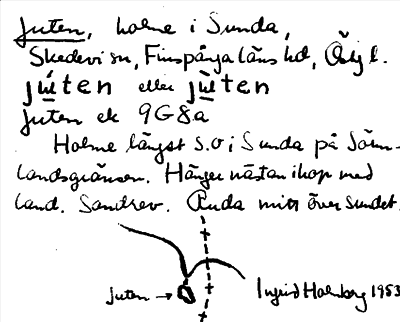 Juten, holme i Sunda,
Skedevi sn, Finspånga läns hd, Östg l.
júten eller jùten
Juten ek 9G8a
Holme längst s.o i Sunda på Söm-
landsgränsen. Hänger nästan ihop med
land. Sandrev. Ända mitt över sundet.
Juten →
Ingrid Holmberg 1953